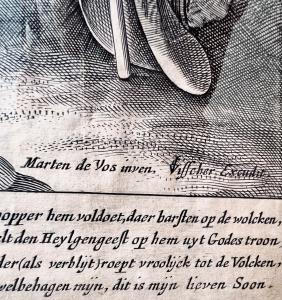 Marten de Vos inven. Visscher Excudit.
opper hem voldoet, daer barsten op de wolcken,
lt den Heylgengeest op hem uyt Godes troon
der (als verblijt) roept vroolijck tot de Volcken,
welbehagen mijn, dit is mijn lieven Soon.